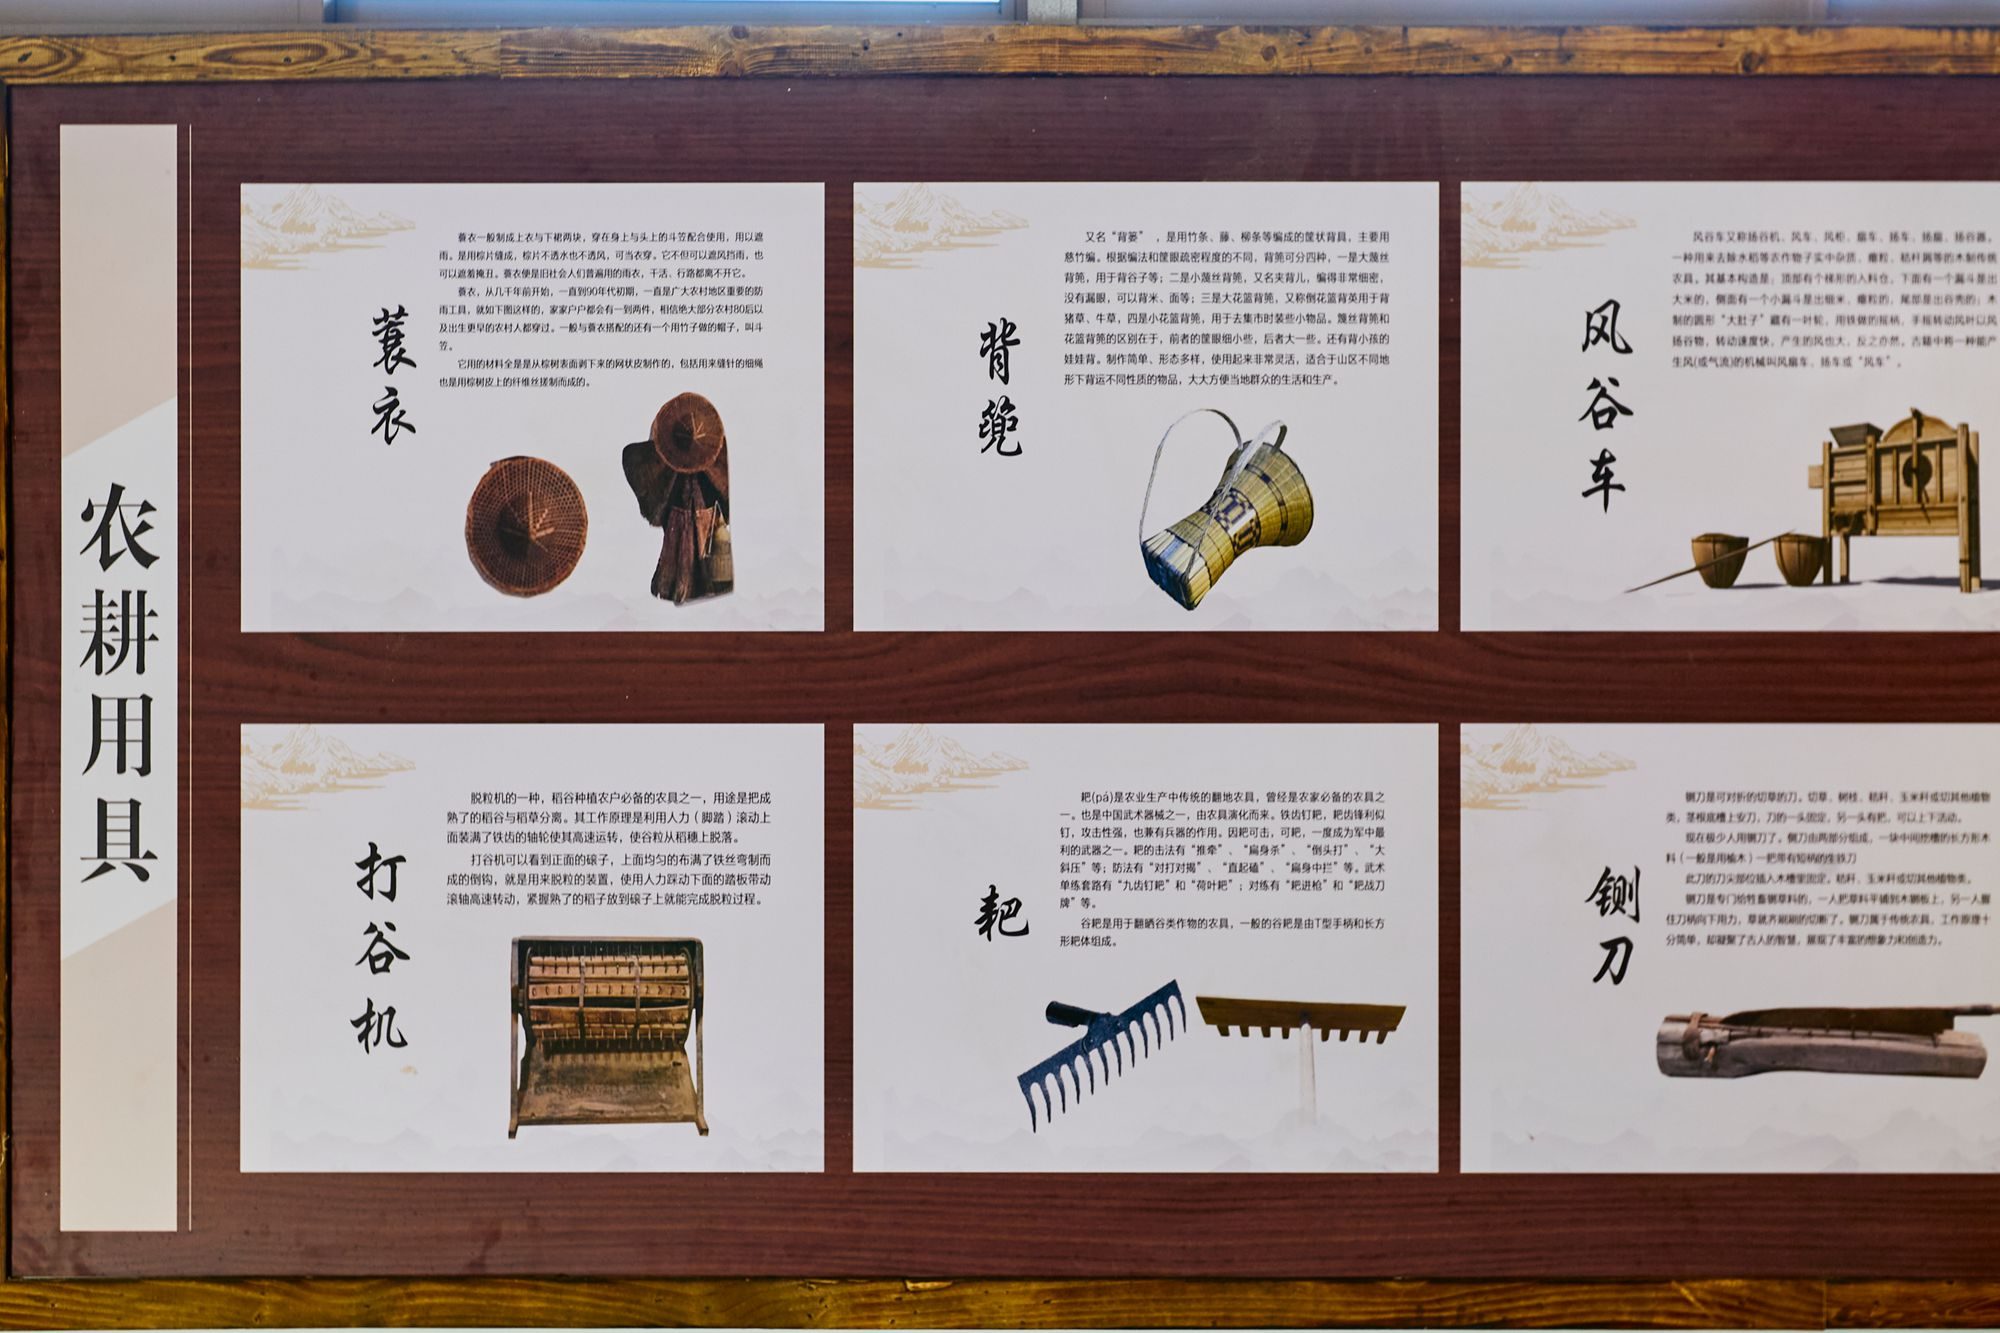 农耕用具
蓑衣
蓑衣一般制成上衣与下裙两块，穿在身上与头上的斗笠配合使用，用以遮
雨。是用棕片缝成，棕片不透水也不透风，可当衣穿。它不但可以遮风挡雨，也
可以遮羞掩丑。蓑衣便是旧社会人们普遍用的雨衣，干活、行路都离不开它。
蓑衣，从几千年前开始，一直到90年代初期，一直是广大农村地区重要的防
雨工具，就如下图这样的，家家户户都会有一到两件，相信绝大部分农村80后以
及出生更早的农村人都穿过。一般与蓑衣搭配的还有一个用竹子做的帽子，叫斗
笠。
它用的材料全是是从棕树表面剥下来的网状皮制作的，包括用来缝针的细绳
也是用棕树皮上的纤维丝搓制而成的。
背篼
又名“背篓”，是用竹条、藤、柳条等编成的筐状背具，主要用
慈竹编。根据编法和筐眼疏密程度的不同，背篼可分四种，一是大篾丝
背篼，用于背谷子等；二是小篾丝背篼，又名夹背儿，编得非常细密，
没有漏眼，可以背米、面等；三是大花篮背篼，又称倒花篮背英用于背
猪草、牛草，四是小花篮背篼，用于去集市时装些小物品。篾丝背篼和
花篮背篼的区别在于，前者的筐眼细小些，后者大一些。还有背小孩的
娃娃背。制作简单、形态多样，使用起来非常灵活，适合于山区不同地
形下背运不同性质的物品，大大方便当地群众的生活和生产。
风谷车
风谷车又称扬谷机、风车、风柜、扇车、扬车、扬扇、扬谷器。
一种用来去除水稻等农作物子实中杂质、瘪粒、秸秆屑等的木制传统
农具。其基本构造是：顶部有个梯形的入料仓，下面有一个漏斗是出
大米的，侧面有一个小漏斗是出细米、瘪粒的，尾部是出谷壳的；木
制的圆形“大肚子”藏有一叶轮，用铁做的摇柄，手摇转动风叶以风
扬谷物，转动速度快，产生的风也大，反之亦然。古籍中将一种能产
生风(或气流)的机械叫风扇车、扬车或“风车”。
打谷机
脱粒机的一种，稻谷种植农户必备的农具之一，用途是把成
熟了的稻谷与稻草分离。其工作原理是利用人力（脚踏）滚动上
面装满了铁齿的轴轮使其高速运转，使谷粒从稻穗上脱落。
打谷机可以看到正面的磙子，上面均匀的布满了铁丝弯制而
成的倒钩，就是用来脱粒的装置，使用人力踩动下面的踏板带动
滚轴高速转动，紧握熟了的稻子放到磙子上就能完成脱粒过程。
耙
耙(pá)是农业生产中传统的翻地农具，曾经是农家必备的农具之
一。也是中国武术器械之一，由农具演化而来。铁齿钉耙，耙齿锋利似
钉，攻击性强，也兼有兵器的作用。因耙可击，可耙，一度成为军中最
利的武器之一。耙的击法有“推牵”、“扁身杀”、“倒头打”、“大
斜压”等；防法有“对打对揭”、“直起磕”、“扁身中拦”等。武术
单练套路有“九齿钉耙”和“荷叶耙”；对练有“耙进枪”和“耙战刀
牌”等。
谷耙是用于翻晒谷类作物的农具，一般的谷耙是由T型手柄和长方
形耙体组成。
铡刀
铡刀是可对折的切草的刀。切草、树枝、秸秆、玉米秆或切其他植物
类，茎根底槽上安刀，刀的一头固定，另一头有把，可以上下活动。
现在极少人用铡刀了。铡刀由两部分组成，一块中间挖槽的长方形木
料（一般是用榆木）一把带有短柄的生铁刀
此刀的刀尖部位插入木槽里固定。秸秆、玉米秆或切其他植物类。
铡刀是专门给牲畜铡草料的，一人把草料平铺到木铡板上，另一人握
住刀柄向下用力，草就齐刷刷的切断了。铡刀属于传统农具，工作原理十
分简单，却凝聚了古人的智慧，展现了丰富的想象力和创造力。